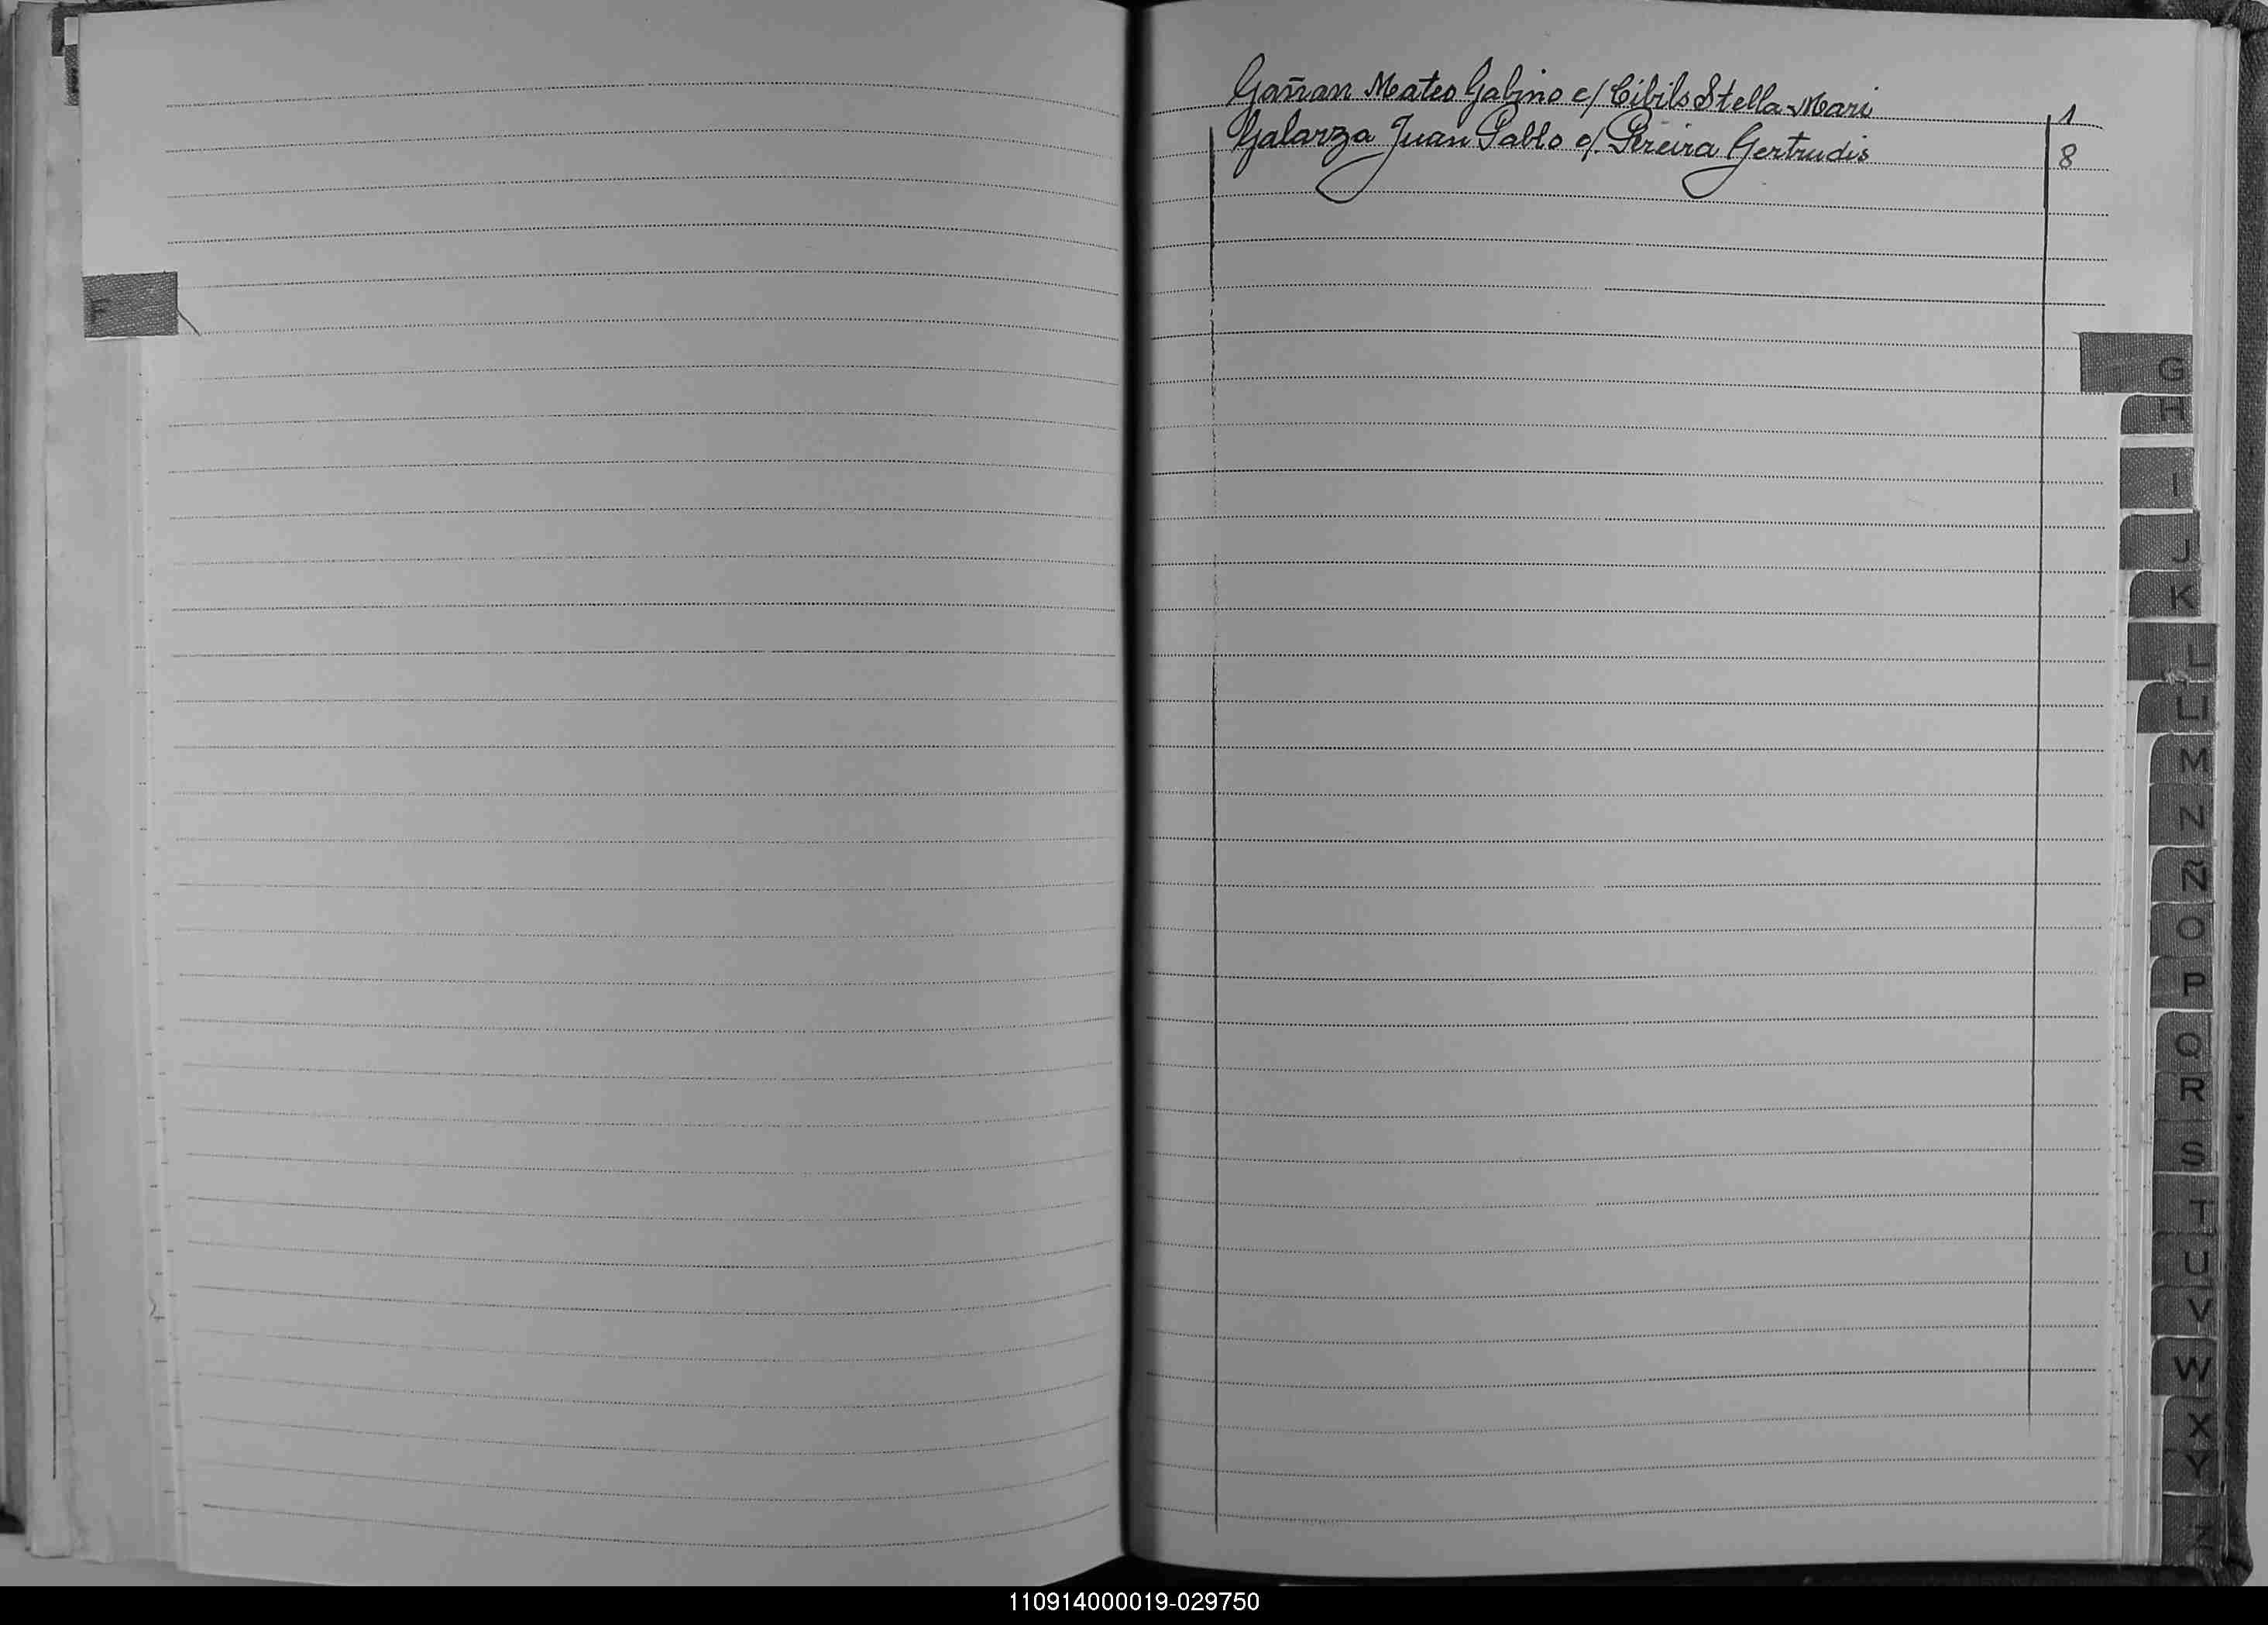 Gañan Mateo Gabino c/ Cibils Stella Mari 1
Galarza Juan Pablo c/. Pereira Gertrudis 8
F
G
H
I
J
K
L
Ll
M
N
Ñ
O
P
Q
R
S
T
U
V
W
X
Y
Z
110914000019-029750